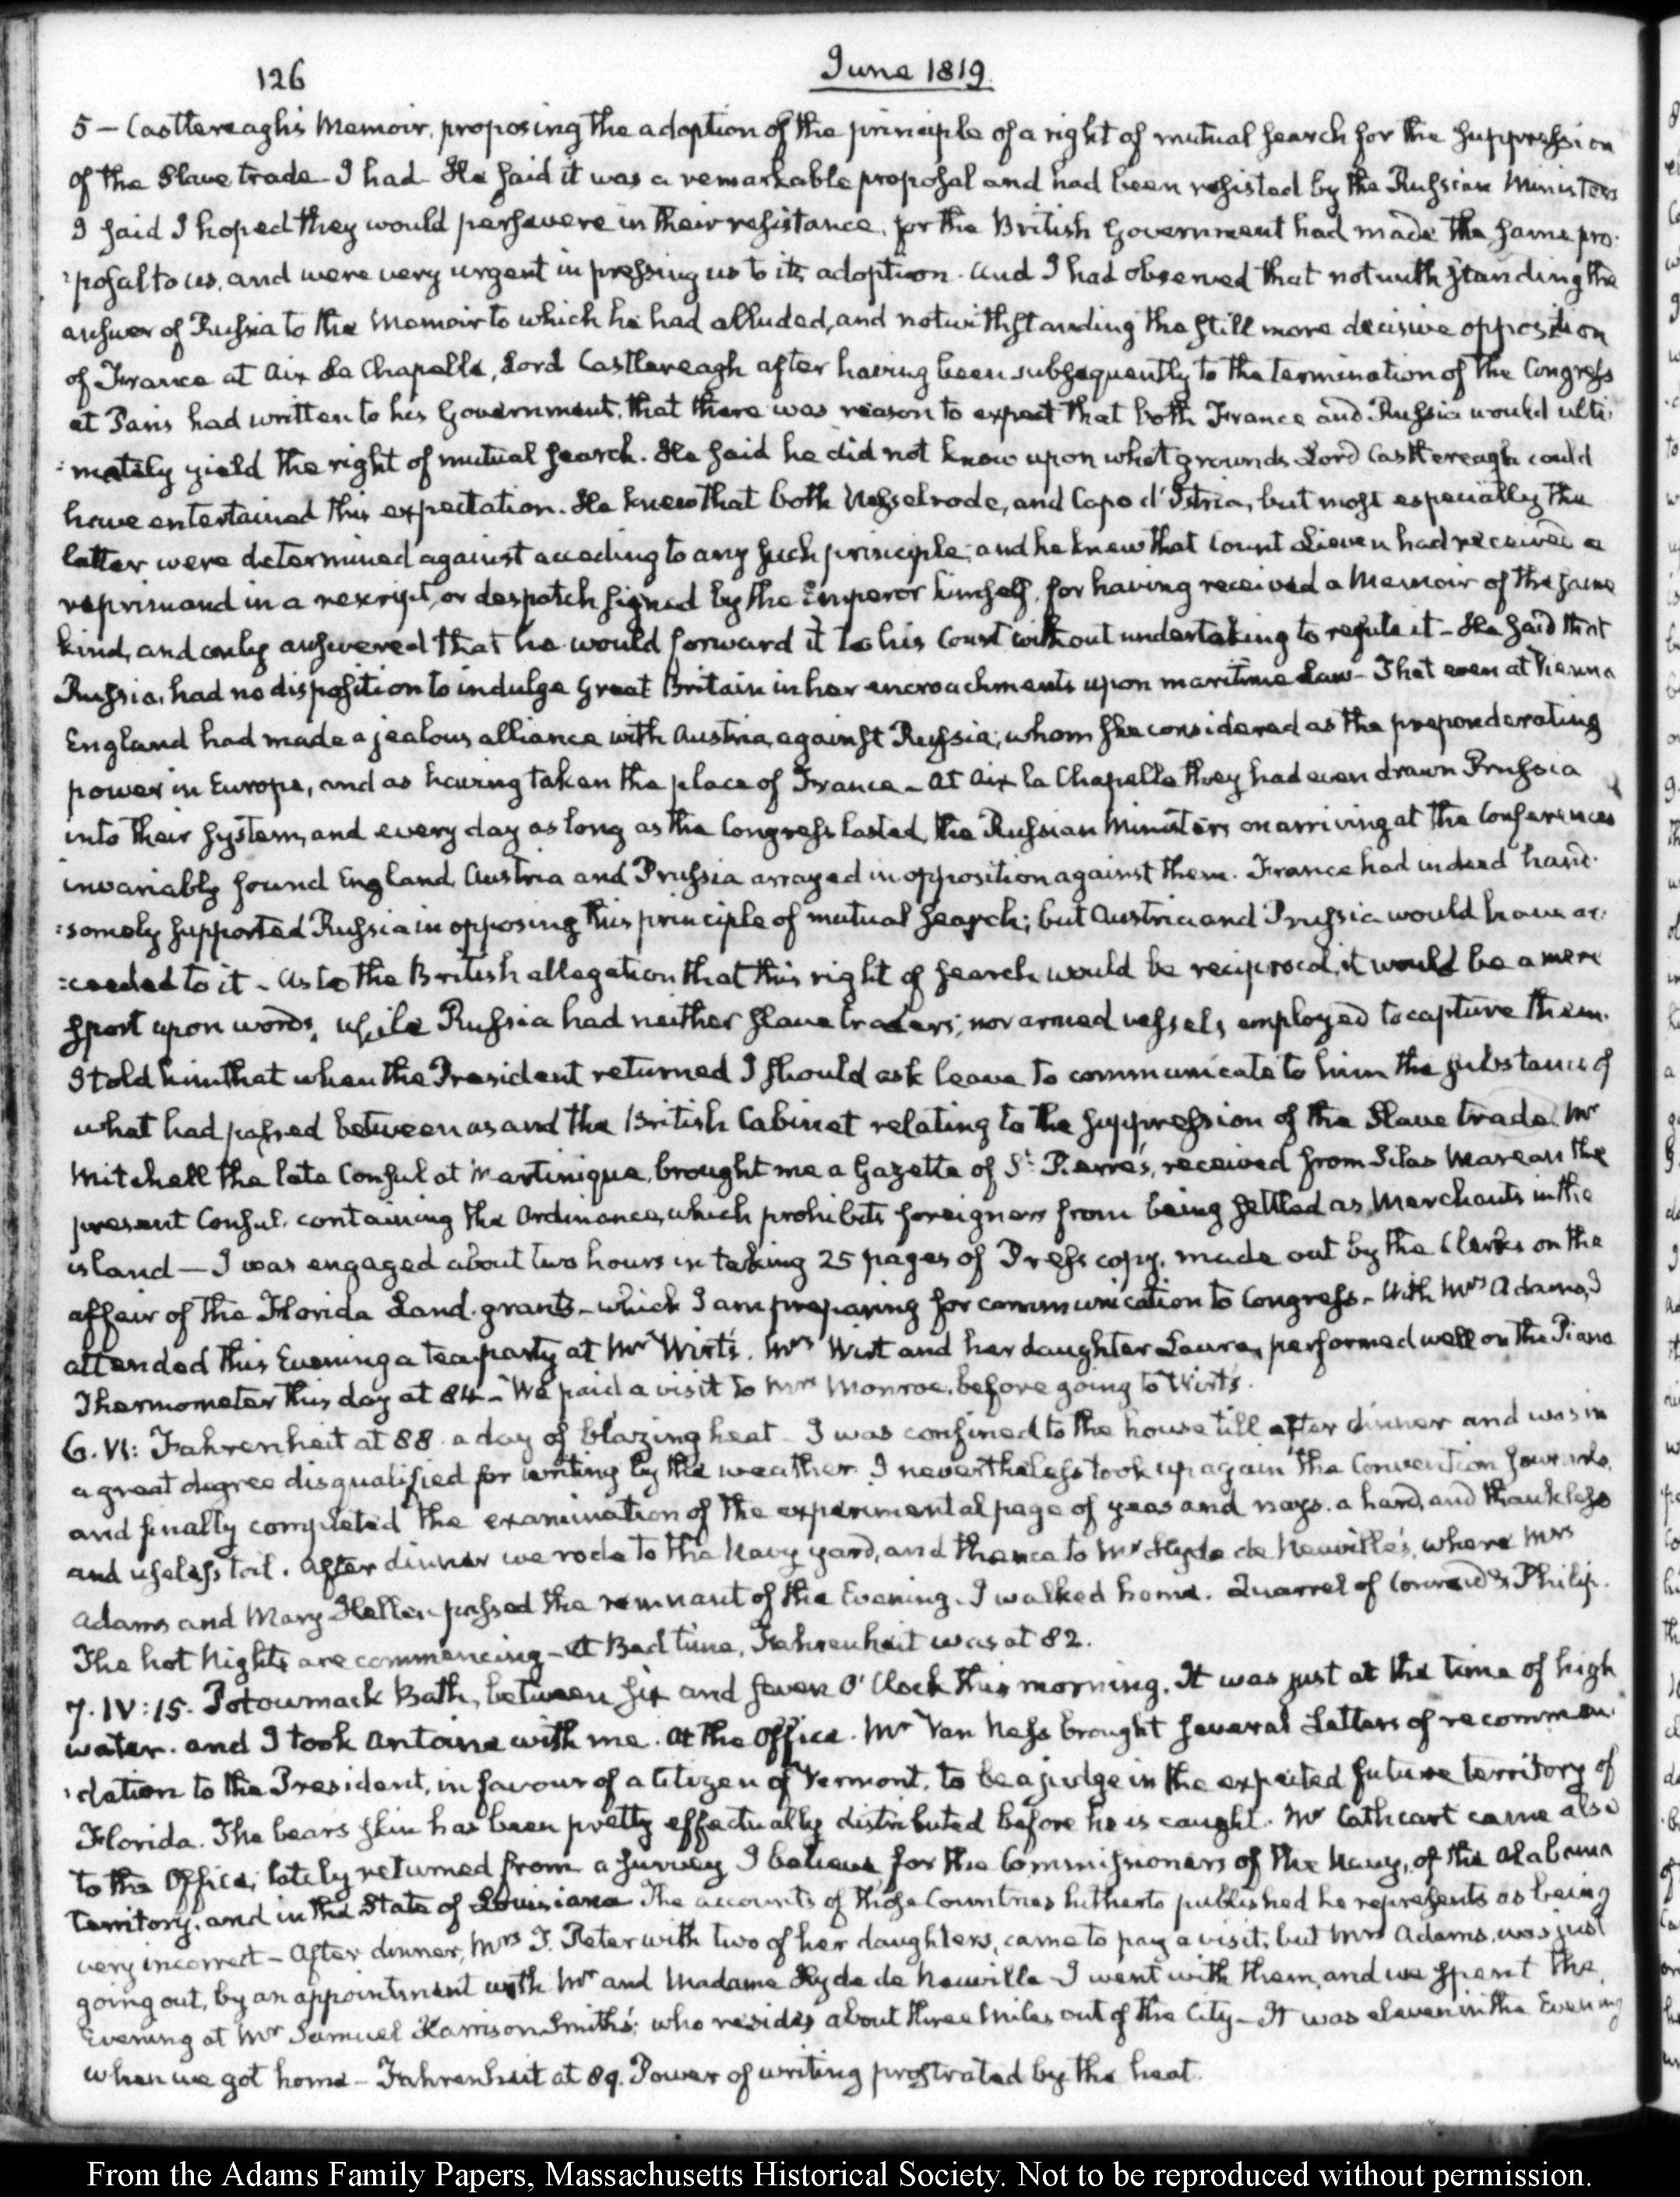 126
June 1819.
5 — Castlereagh's Memoir, proposing the adoption of the principle of a right of mutual search for the suppression
of the Slave trade— I had— He said it was a remarkable proposal and had been resisted by the Russian Ministers
I said I hoped they would persevere in their resistance, for the British Government had made the same pro-
:posal to us, and were very urgent in pressing us to its adoption. And I had observed that notwithstanding the
answer of Russia to the Memoir to which he had alluded, and notwithstanding the still more decisive opposition
of France at Aix La Chapelle, Lord Castlereagh after having been subsequently to the termination of the Congress
at Paris had written to his Government, that there was reason to expect that both France and Russia would ulti-
:mately yield the right of mutual search. He said he did not know upon what grounds Lord Castlereagh could
have entertained this expectation. He knew that both Nesselrode, and Capo d'Istria, but most especially the
latter were determined against acceding to any such principle; and he knew that Count Lieven had received a
reprimand in a rescript, or despatch signed by the Emperor himself, for having received a Memoir of the same
kind, and only answered that he would forward it to his Court without undertaking to refute it— He said that
Russia, had no disposition to indulge Great Britain in her encroachments upon maritime Law— That even at Vienna
England had made a jealous alliance with Austria, against Russia; whom she considered as the preponderating
power in Europe, and as having taken the place of France— At Aix la Chapelle they had even drawn Prussia
into their system, and every day as long as the Congress lasted, the Russian Ministers on arriving at the Conferences
invariably found England, Austria and Prussia arrayed in opposition against them. France had indeed hand-
:somely supported Russia in opposing this principle of mutual search; but Austria and Prussia would have ac-
:ceeded to it— As to the British allegation that this right of search would be reciprocal, it would be a mere
sport upon words, while Russia had neither slave traders, nor armed vessels employed to capture them.
I told him that when the President returned I should ask leave to communicate to him the substance of
what had passed between us and the British Cabinet relating to the suppression of the Slave trade. Mr
Mitchell the late Consul at Martinique, brought me a Gazette of St. Pierre's, received from Silas Marean the
present Consul, containing the Ordinance, which prohibits foreigners from being settled as Merchants in the
island— I was engaged about two hours in taking 25 pages of Press copy, made out by the Clerks on the
affair of the Florida Land grants— which I am preparing for communication to Congress— With Mrs Adams, I
attended this Evening a tea party at Mr Wirt's. Mrs Wirt and her daughter Laura, performed well on the Piano
Thermometer this day at 84— We paid a visit to Mrs Monroe, before going to Wirt's.
6. VI: Fahrenheit at 88. a day of blazing heat— I was confined to the house till after dinner and was in
a great degree disqualified for writing by the weather. I nevertheless took up again the Convention Journals,
and finally completed the examination of the experimental page of yeas and nays. a hard, and thankless
and useless toil. After dinner we rode to the Navy yard, and thence to Mr Hyde de Neuville's, where Mrs
Adams and Mary Hellen passed the remnant of the Evening. I walked home. Quarrel of Conrad & Philip.
The hot Nights are commencing— At Bed time, Fahrenheit was at 82.
7. IV:15. Potowmack Bath, between six and seven O'Clock this morning. It was just at the time of high
water. and I took Antoine with me. At the Office. Mr Van Ness brought several Letters of recommen-
:dation to the President, in favour of a Citizen of Vermont, to be a judge in the expected future territory of
Florida. The bear's skin has been pretty effectually distributed before he is caught. Mr Cathcart came also
to the Office; lately returned from a survey I believe for the Commissioners of the Navy, of the Alabama
Territory, and in the State of Louisiana The accounts of those Countries hitherto published he represents as being
very incorrect— After dinner, Mrs T. Peter with two of her daughters, came to pay a visit, but Mrs Adams, was just
going out, by an appointment with Mr and Madame Hyde de Neuville— I went with them, and we spent the
Evening at Mr Samuel Harrison Smith's; who resides about three Miles out of the City— It was eleven in the Evening
when we got home— Fahrenheit at 89. Power of writing prostrated by the heat.
From the Adams Family Papers, Massachusetts Historical Society. Not to be reproduced without permission.